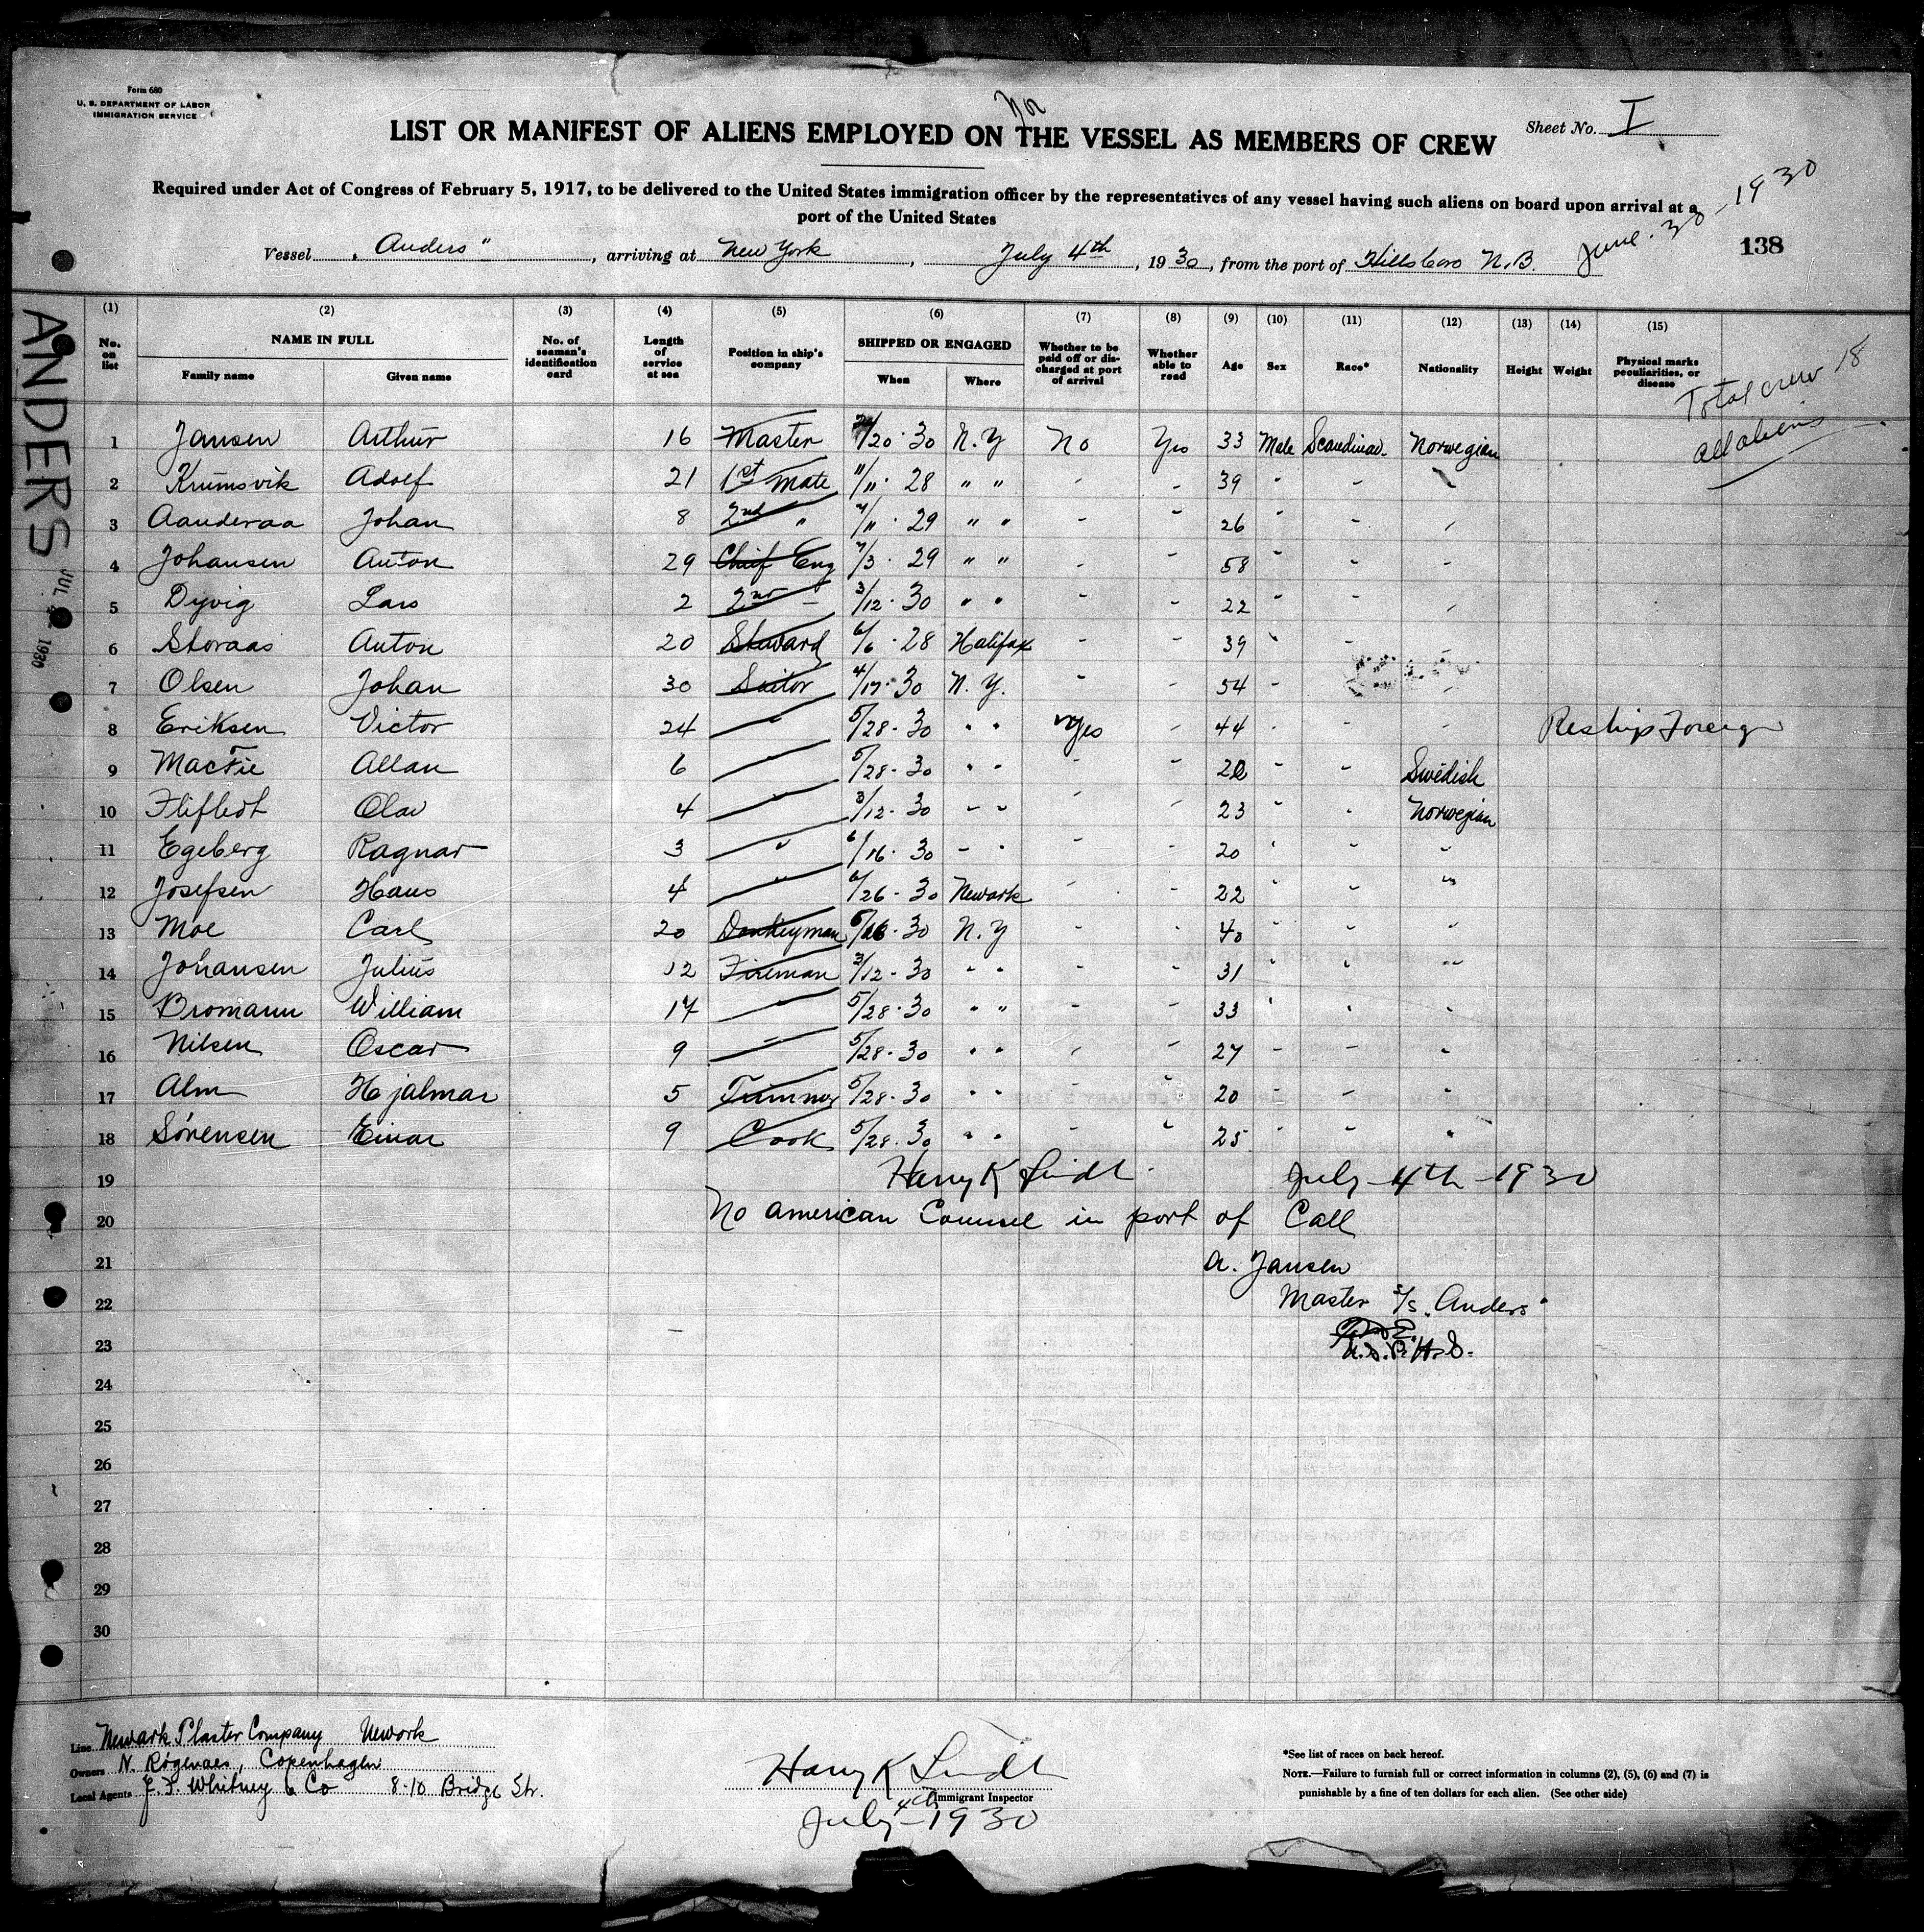 Form 680
U. S. DEPARTMENT OF LABOR
IMMIGRATION SERVICE
Nor
LIST OR MANIFEST OF ALIENS EMPLOYED ON THE VESSEL AS MEMBERS OF CREW
Sheet No. I
Required under Act of Congress of February 5, 1917, to be delivered to the United States immigration officer by the representatives of any vessel having such aliens on board upon arrival at a
port of the United States
Vessel "Anders", arriving at New York, July 4th, 1930, from the port of Hillsboro N.B. June. 30 - 1930
138
ANDERS JUL 1930
(1) (2) (3) (4) (5) (6) (7) (8) (9) (10) (11) (12) (13) (14) (15)
No. on list NAME IN FULL Family name Given name No. of seaman's identification card Length of service at sea Position in ship's company SHIPPED OR ENGAGED When Where Whether to be paid off or discharged at port of arrival Whether able to read Age Sex Race* Nationality Height Weight Physical marks peculiarities, or disease
Total crew 18
all aliens
1 Jansen Arthur 16 Master /20·30 N.Y No Yes 33 Male Scandinav. Norwegian
2 Krumsvik Adolf 21 1st Mate 11/11· 28 " " - - 39 " - "
3 Aanderaa Johan 8 2nd " 4/11· 29 " " - " 26 " - "
4 Johansen Anton 29 Chief Eng 7/3· 29 " " - " 58 " - "
5 Dyvig Lars 2 2nd - 3/12·30 " " - - 22 " - "
6 Storaas Anton 20 Steward 6/6·28 Halifax - - 39 " -
7 Olsen Johan 30 Sailor 4/17·30 N.Y. - - 54 -
8 Eriksen Victor 24 " 5/28·30 " " Yes - 44 " - " Reship Foreign
9 MacFie Allan 6 " 5/28·30 " " - - - - Swedish
10 Olav 4 " 3/12·30 - - " - 23 - " Norwegian
11 Egeberg Ragnar 3 " 6/16·30 - " - - 20 " - "
12 Josefsen Hans 4 " 6/26·30 Newark - - 22 " " "
13 Moe Carl 20 Donkeyman 5/16·30 N.Y - - 40 " " "
14 Johansen Julius 12 Fireman 3/12·30 " " - - 31 " " "
15 Bromann William 17 - 5/28·30 " " - - 33 " " "
16 Nilsen Oscar 9 " 5/28·30 " " - " 27 - - "
17 Alm Hjalmar 5 Trimmer 5/28·30 " " - " 20 - - "
18 Sörensen Einar 9 Cook 5/28·30 " " - " 25 " " "
19 Harry K Lindt July 4th - 1930
20 No american Counsel in port of Call
21 A. Jansen
22 Master S/S "Anders"
23 U.S.P.H.S.
24
25
26
27
28
29
30
Line Newark Plaster Company Newark
Owners N. Rogenaes, Copenhagen
Local Agents J. F. Whitney & Co 8-10 Bridge Str.
Harry K Lindt
Immigrant Inspector
July 4th - 1930
*See list of races on back hereof.
NOTE.—Failure to furnish full or correct information in columns (2), (5), (6) and (7) is
punishable by a fine of ten dollars for each alien. (See other side)